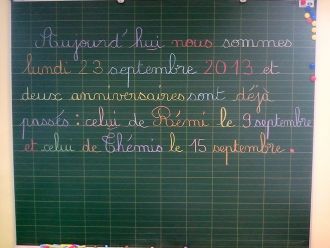 Aujourd'hui nous sommes
lundi 23 septembre 2013 et
deux anniversaires sont déjà
passés : celui de Rémi le 9 septembre
et celui de Thémis le 15 septembre.